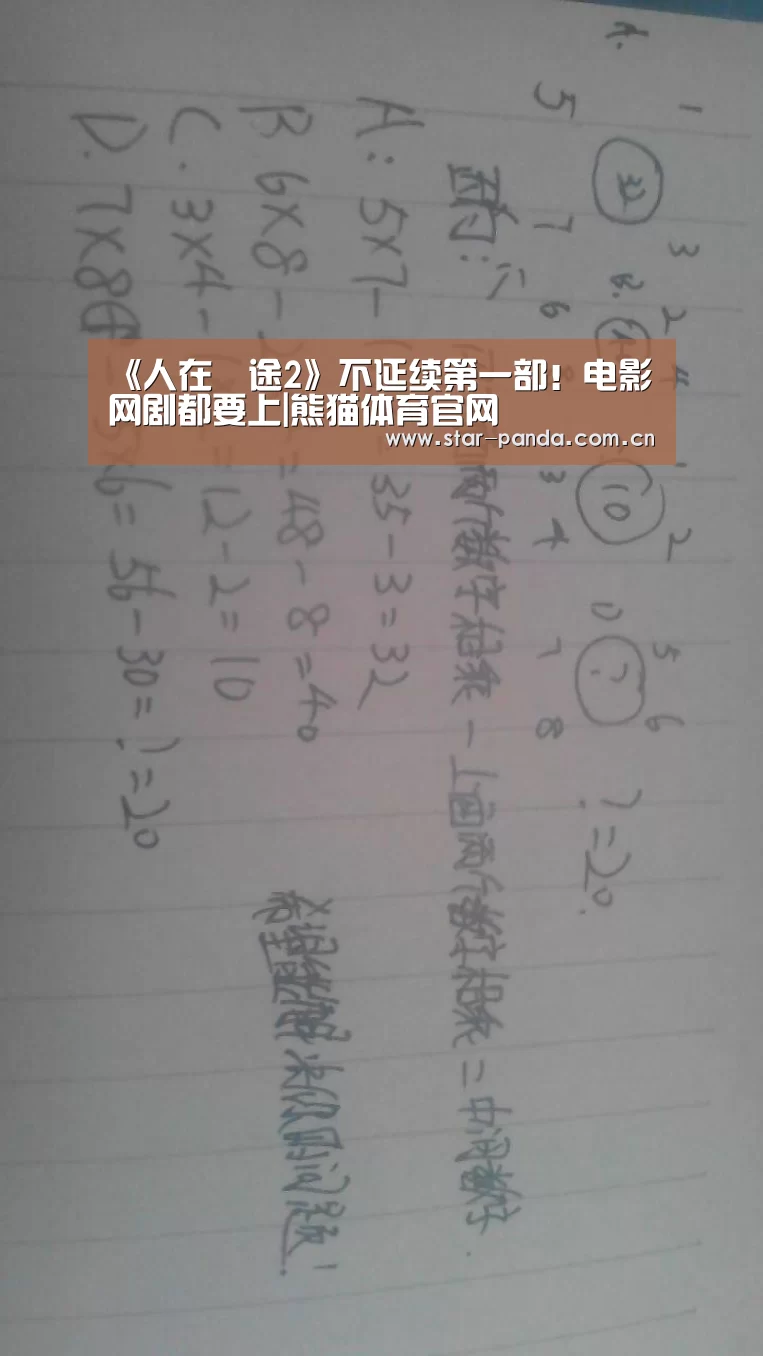 《人在 途2》不延续第一部！电影
网剧都要上|熊猫体育官网
www.star-panda.com.cn
A. 1 3 B. 2 4 1 2 5 6
32 10 D ? ?=20.
5 7 6 3 4 7 8
两个数字相乘-上面两个数字相乘=中间数字.
A: 5×7- 35-3=32
B. 6×8-2 =48-8=40
C. 3×4- =12-2=10
D. 7×8 5×6=56-30=?=20
希望能解决你的问题!